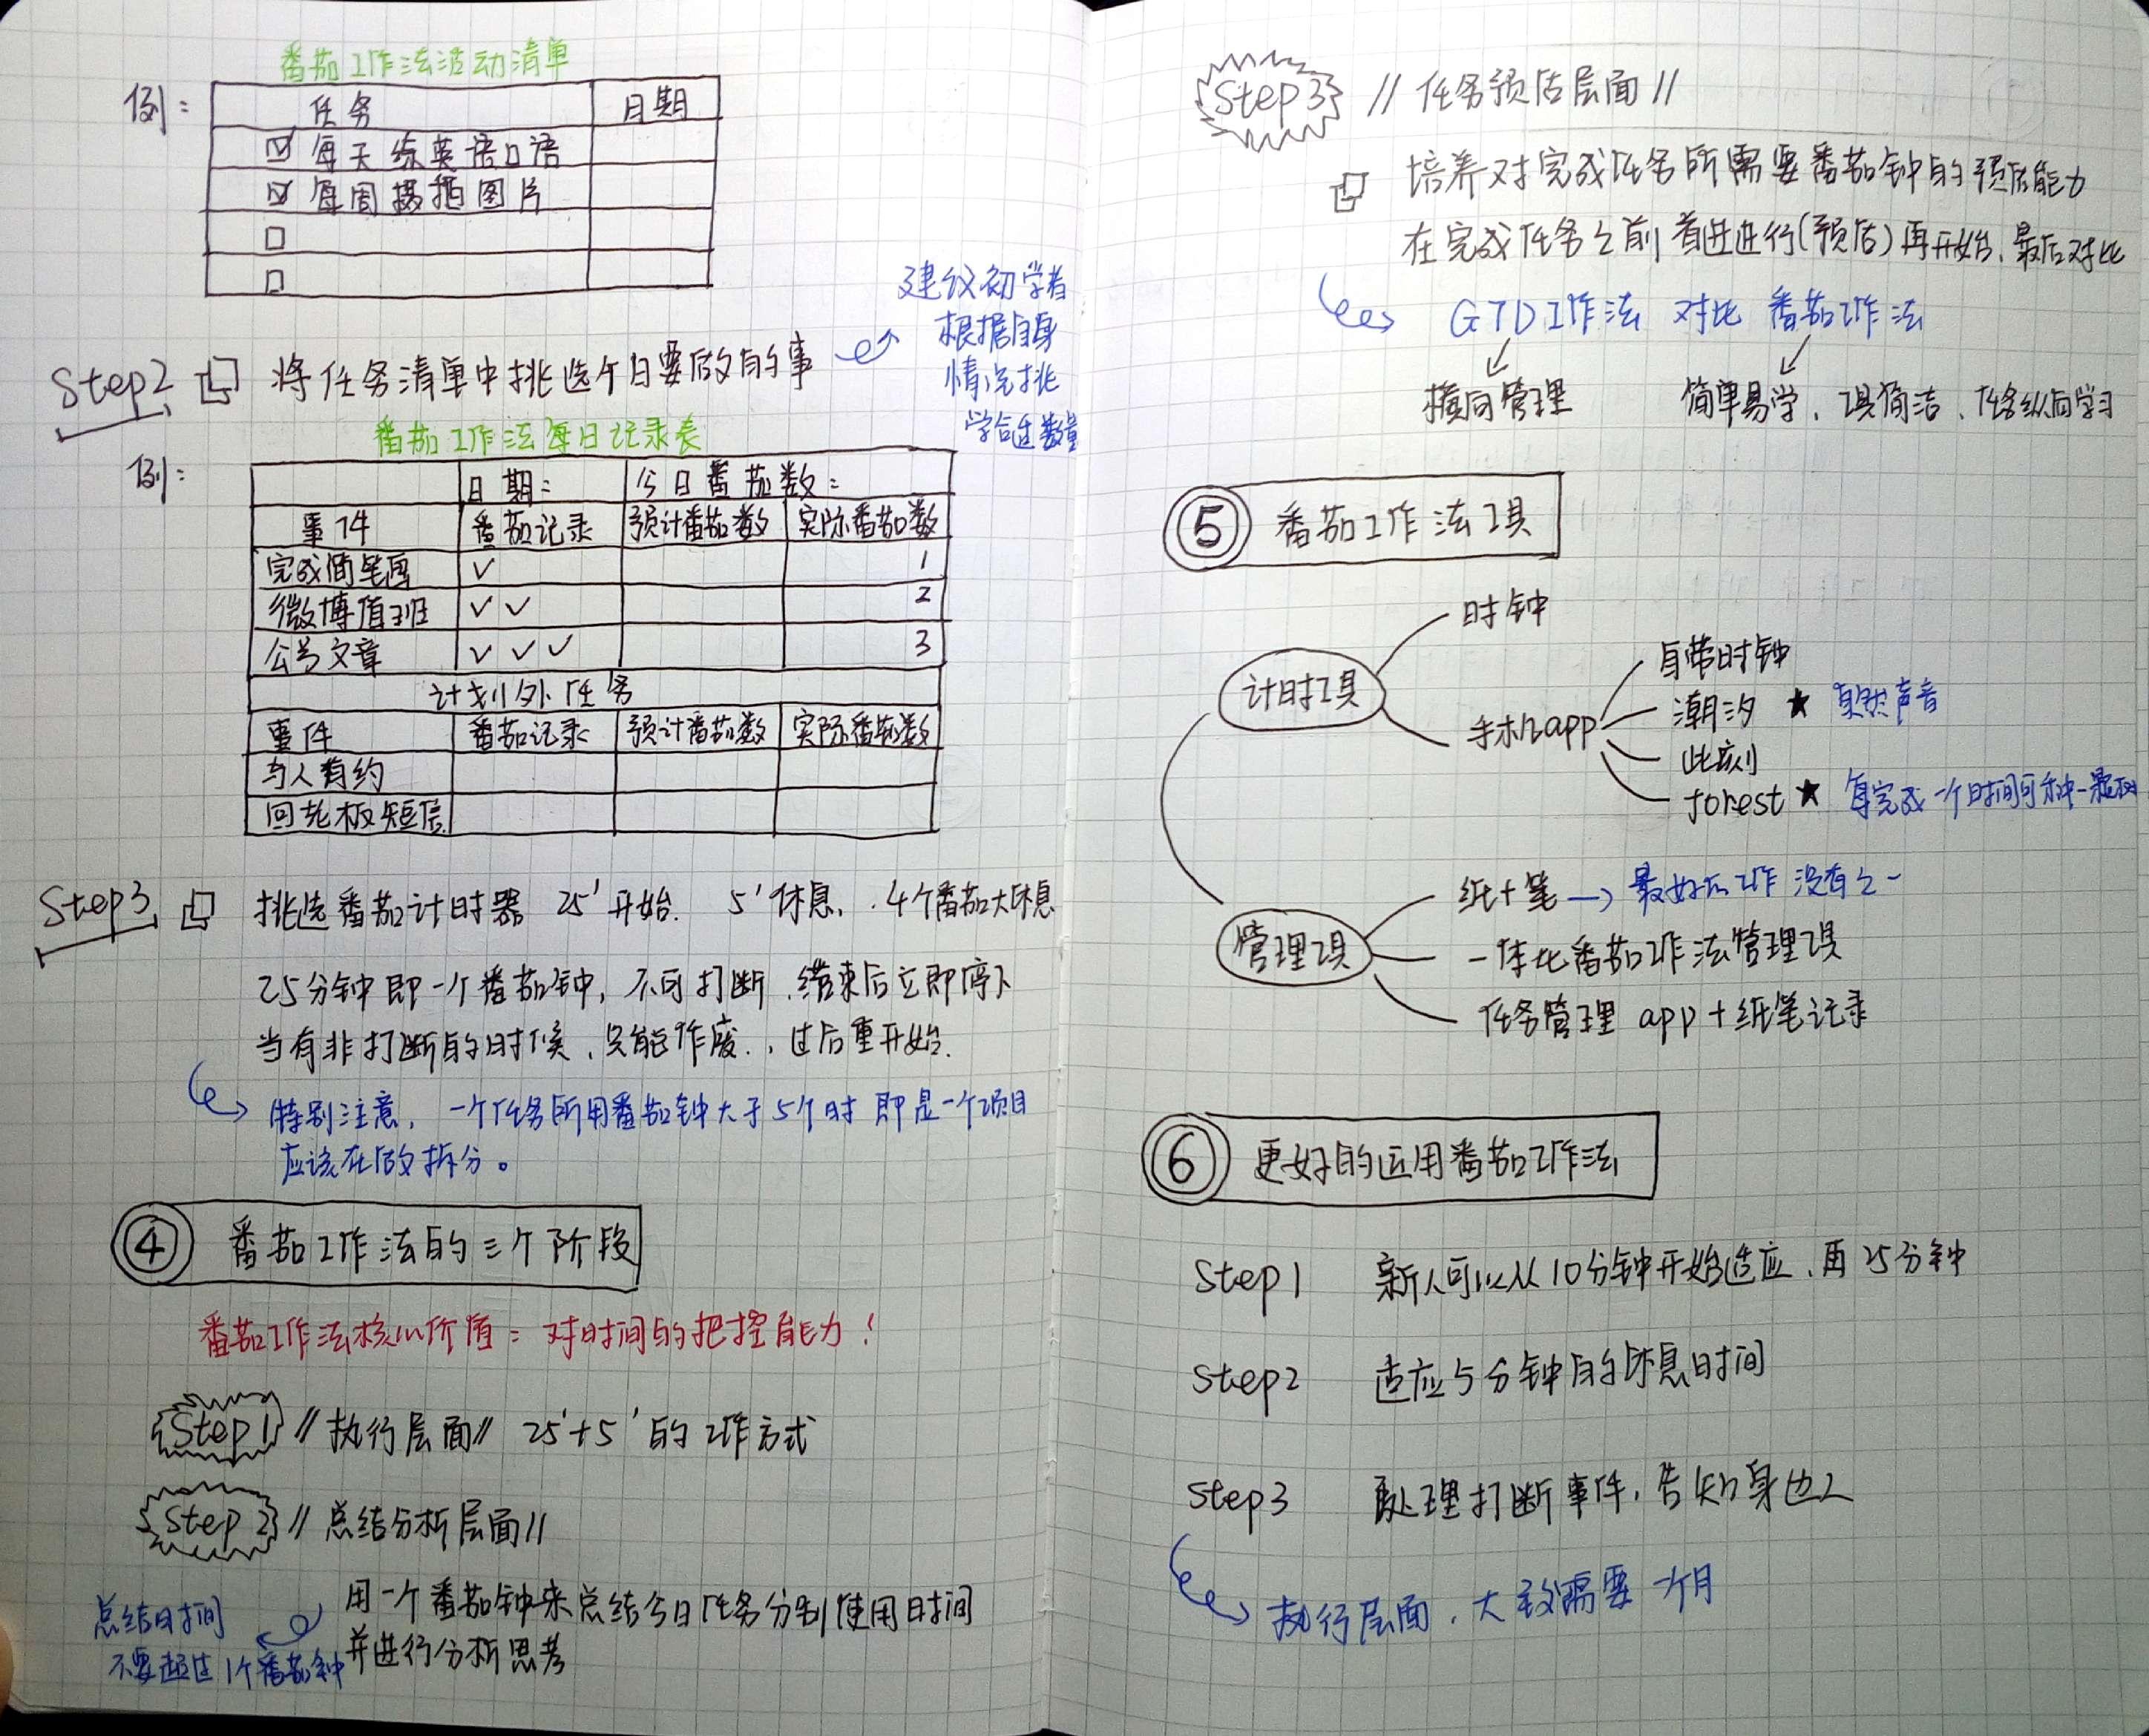 番茄工作法活动清单
例：
任务 日期
☑ 每天练英语口语
☑ 每周摄拍图片
□
□
Step2 将任务清单中挑选今日要做的事
建议初学者
根据自身
情况挑
合适数量
番茄工作法每日记录表
例：
日期： 今日番茄数：
事件 番茄记录 预计番茄数 实际番茄数
完成简笔画 ✓ 1
微博值班 ✓ ✓ 2
公号文章 ✓ ✓ ✓ 3
计划外任务
事件 番茄记录 预计番茄数 实际番茄数
与人有约
回老板短信
Step3 挑选番茄计时器 25' 开始. 5'休息, 4个番茄大休息
25分钟即一个番茄钟, 不可打断, 结束后立即停下
当有非打断的时候, 只能作废., 过后重开始.
特别注意, 一个任务所用番茄钟大于5个时 即是一个项目
应该在做拆分。
④ 番茄工作法的三个阶段
番茄工作法核心价值：对时间的把控能力！
Step1 //执行层面// 25'+5'的工作方式
Step2 //总结分析层面//
用一个番茄钟来总结今日任务分别使用时间
并进行分析思考
总结时间
不要超过1个番茄钟
Step3 //任务预估层面//
培养对完成任务所需要番茄钟的预估能力
在完成任务之前首进进行(预估)再开始, 最后对比
GTD工作法 对比 番茄工作法
横向管理 简单易学、工具简洁、任务纵向学习
⑤ 番茄工作法工具
计时工具
时钟
手机app
自带时钟
潮汐 ★ 自然声音
此刻
forest ★ 每完成一个时间可种一颗树
管理工具
纸+笔 → 最好的工作 没有之一
一体化番茄工作法管理工具
任务管理 app+纸笔记录
⑥ 更好的运用番茄工作法
Step1 新人可以从10分钟开始适应, 再25分钟
Step2 适应5分钟的休息时间
Step3 处理打断事件, 告知身边人
执行层面, 大致需要一个月